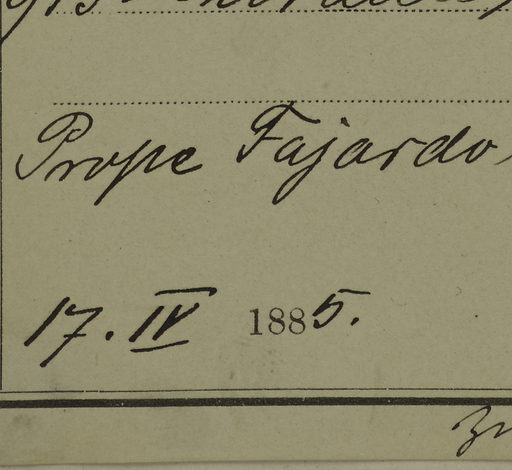 Prope Fajardo,
17. IV 1885.